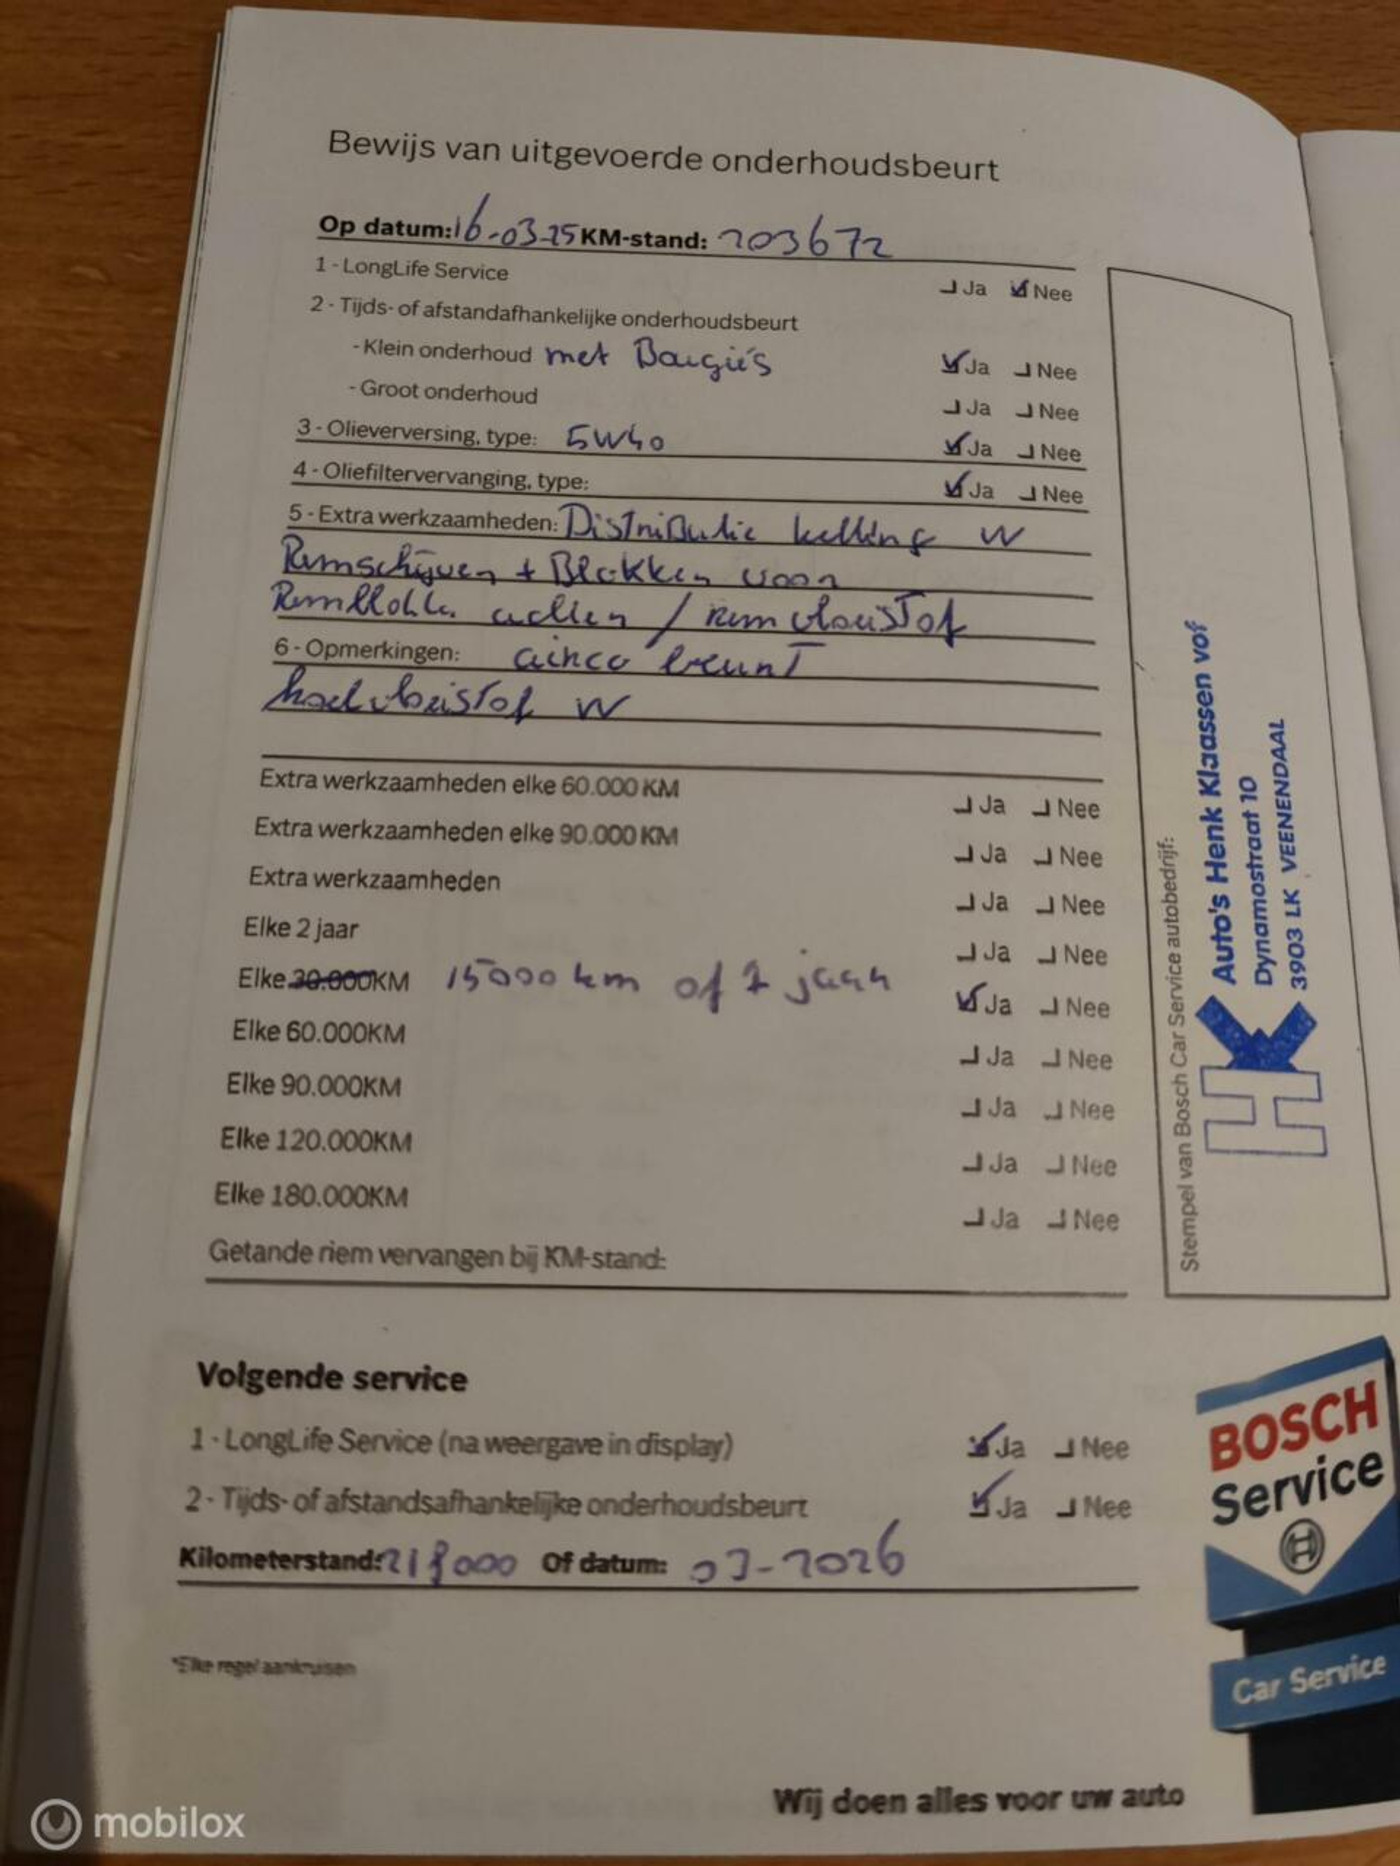 Bewijs van uitgevoerde onderhoudsbeurt
Op datum: 16-03-25 KM-stand: 203672
1 - LongLife Service Ja Nee
2 - Tijds- of afstandafhankelijke onderhoudsbeurt
- Klein onderhoud met Bougies Ja Nee
- Groot onderhoud Ja Nee
3 - Olieverversing, type: 5W40 Ja Nee
4 - Oliefiltervervanging, type: Ja Nee
5 - Extra werkzaamheden: Distributie ketting W
Remschijven + Blokken voor
Remblokken achter / remvloeistof
6 - Opmerkingen: airco beurt
koelvloeistof W
Extra werkzaamheden elke 60.000 KM Ja Nee
Extra werkzaamheden elke 90.000 KM Ja Nee
Extra werkzaamheden Ja Nee
Elke 2 jaar Ja Nee
Elke 30.000KM 15000 km of 1 jaar Ja Nee
Elke 60.000KM Ja Nee
Elke 90.000KM Ja Nee
Elke 120.000KM Ja Nee
Elke 180.000KM Ja Nee
Getande riem vervangen bij KM-stand:
Stempel van Bosch Car Service autobedrijf:
HK
Auto's Henk Klaassen vof
Dynamostraat 10
3903 LK VEENENDAAL
Volgende service
1 - LongLife Service (na weergave in display) Ja Nee
2 - Tijds- of afstandsafhankelijke onderhoudsbeurt Ja Nee
Kilometerstand: 218000 Of datum: 03-2026
*Elke regel aankruisen
BOSCH
Service
Car Service
Wij doen alles voor uw auto
mobilox